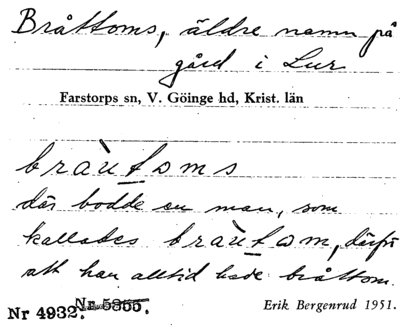 Bråttoms, äldre namn på
gård i Lur
Farstorps sn, V. Göinge hd, Krist. län
bràu̍toms
där bodde en man, som
kallades bràu̍tom, därför
att han alltid hade bråttom.
Nr 4932. Nr 5355.
Erik Bergenrud 1951.